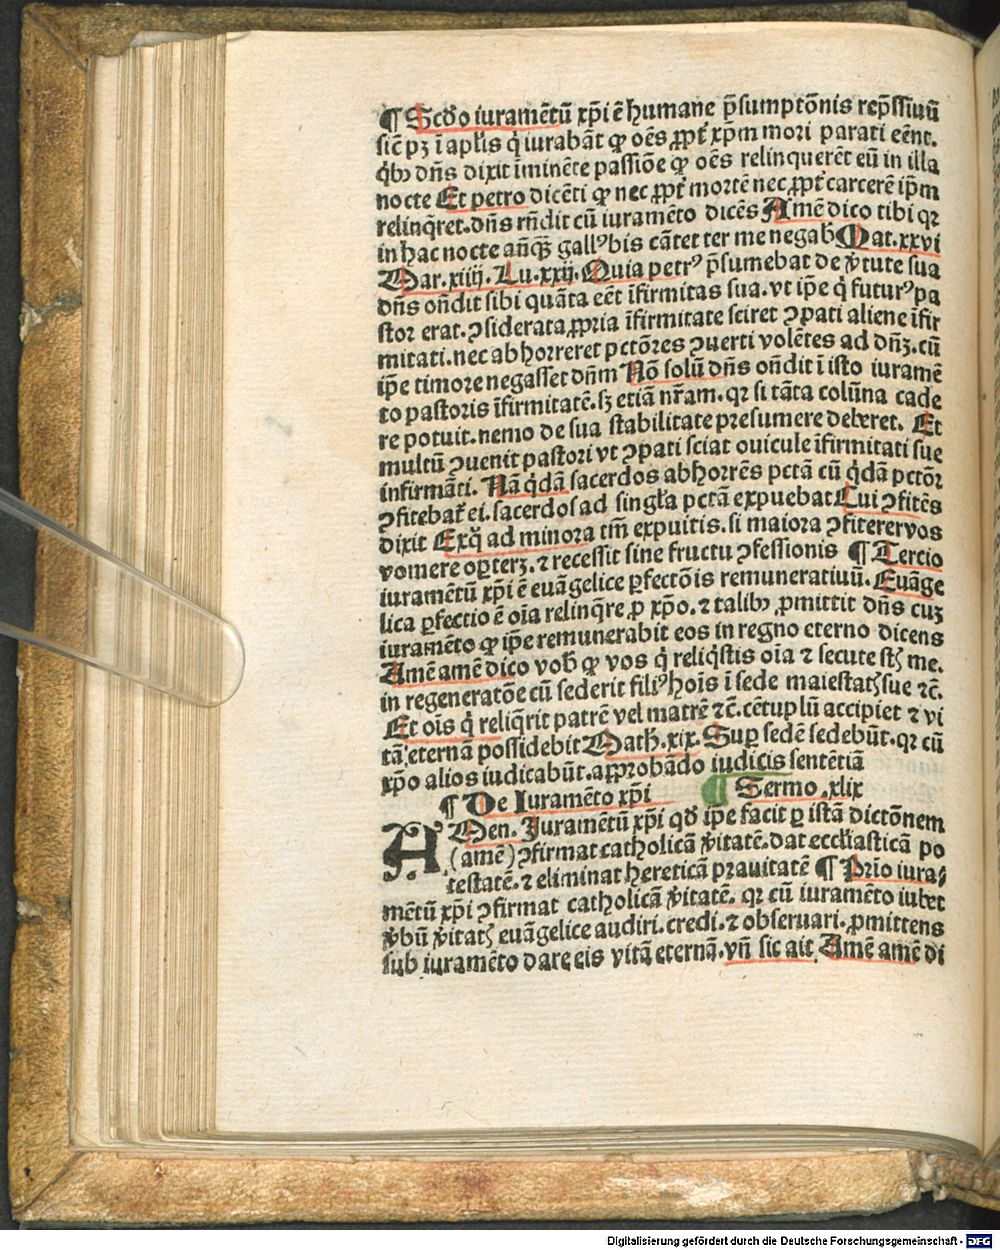 ¶ Scḋo iuramētū xp̄i ē humane p̄sumptōnis rep̄ssiuū
sic̄ pꝫ ī apl̄is q̇ iurabāt ꝙ oēs ꝓpt̄ xp̄m mori parati eēnt.
q̇bꝰ dn̄s dixit īminēte passiōe ꝙ oēs relinquerēt eū in illa
nocte Et petro dicēti ꝙ nec ꝓpt̄ mortē nec ꝓpt̄ carcerē ip̄m
relinq̄ret. dn̄s rn̄dit cū iuramēto dicēs Amē dico tibi qꝛ
in hac nocte an̄qꝙ̄ gallꝰ bis cātet ter me negab̄ Mat. xxvi
Mar. xiiij. Lu. xxij. Quia petrꝰ p̄sumebat de v̄tute sua
dn̄s on̄dit sibi quāta eēt īfirmitas sua. vt ip̄e q̇ futurꝰ pa
stor erat. ꝯsiderata ꝓpria īfirmitate sciret ꝯpati aliene īfir
mitati. nec abhorreret pctōres ꝯuerti volētes ad dn̄ꝫ. cū
ip̄e timore negasset dn̄m Nō solū dn̄s on̄dit ī isto iuramē
to pastoris īfirmitatē. sꝫ etiā nr̄am. qꝛ si tāta colūna cade
re potuit. nemo de sua stabilitate presumere deberet. Et
multū ꝯuenit pastori vt ꝯpati sciat ouicule īfirmitati sue
infirmāti. Nā q̇dā sacerdos abhorrēs pctā cū q̇dā pctōr
ꝯfitebat̄ ei. sacerdos ad singl̄a pctā expuebat Cui ꝯfitēs
dixit Exq̇ ad minora tm̄ expuitis. si maiora ꝯfiterer vos
vomere oꝑterꝫ. ⁊ recessit sine fructu ꝯfessionis ¶ Tercio
iuramētū xp̄i ē euāgelice ꝑfectōis remuneratiuū. Euāge
lica ꝑfectio ē oīa relinq̄re ꝓ xp̄o. ⁊ talibꝰ ꝓmittit dn̄s cuꝫ
iuramēto ꝙ ip̄e remunerabit eos in regno eterno dicens
Amē amē dico vob̄ ꝙ vos q̇ reliq̇stis oīa ⁊ secuti estꝭ me.
in regeneratōe cū sederit filiꝰ hoīs ī sede maiestatꝭ sue ⁊c̄.
Et oīs q̇ reliq̄rit patrē vel matrē ⁊c̄. cētuplū accipiet ⁊ vi
tā eternā possidebit Math̄. xix. Suꝑ sedē sedebūt. qꝛ cū
xp̄o alios iudicabūt. approbādo iudicis sentētiā
¶ De Iuramēto xp̄i ¶ Sermo .xlix
AMen. Iuramētū xp̄i qḋ ip̄e facit ꝑ istā dictōnem
(amē) ꝯfirmat catholicā v̄itatē. dat eccl̄iasticā po
testatē. ⁊ eliminat hereticā prauitatē ¶ Prīo iura⸗
mētū xp̄i ꝯfirmat catholicā v̄itatē. qꝛ cū iuramēto iubet
v̄bū v̄itatꝭ euāgelice audiri. credi. ⁊ obseruari. ꝓmittens
sub iuramēto dare eis vitā eternā. vn̄ sic ait Amē amē di
Digitalisierung gefördert durch die Deutsche Forschungsgemeinschaft - DFG